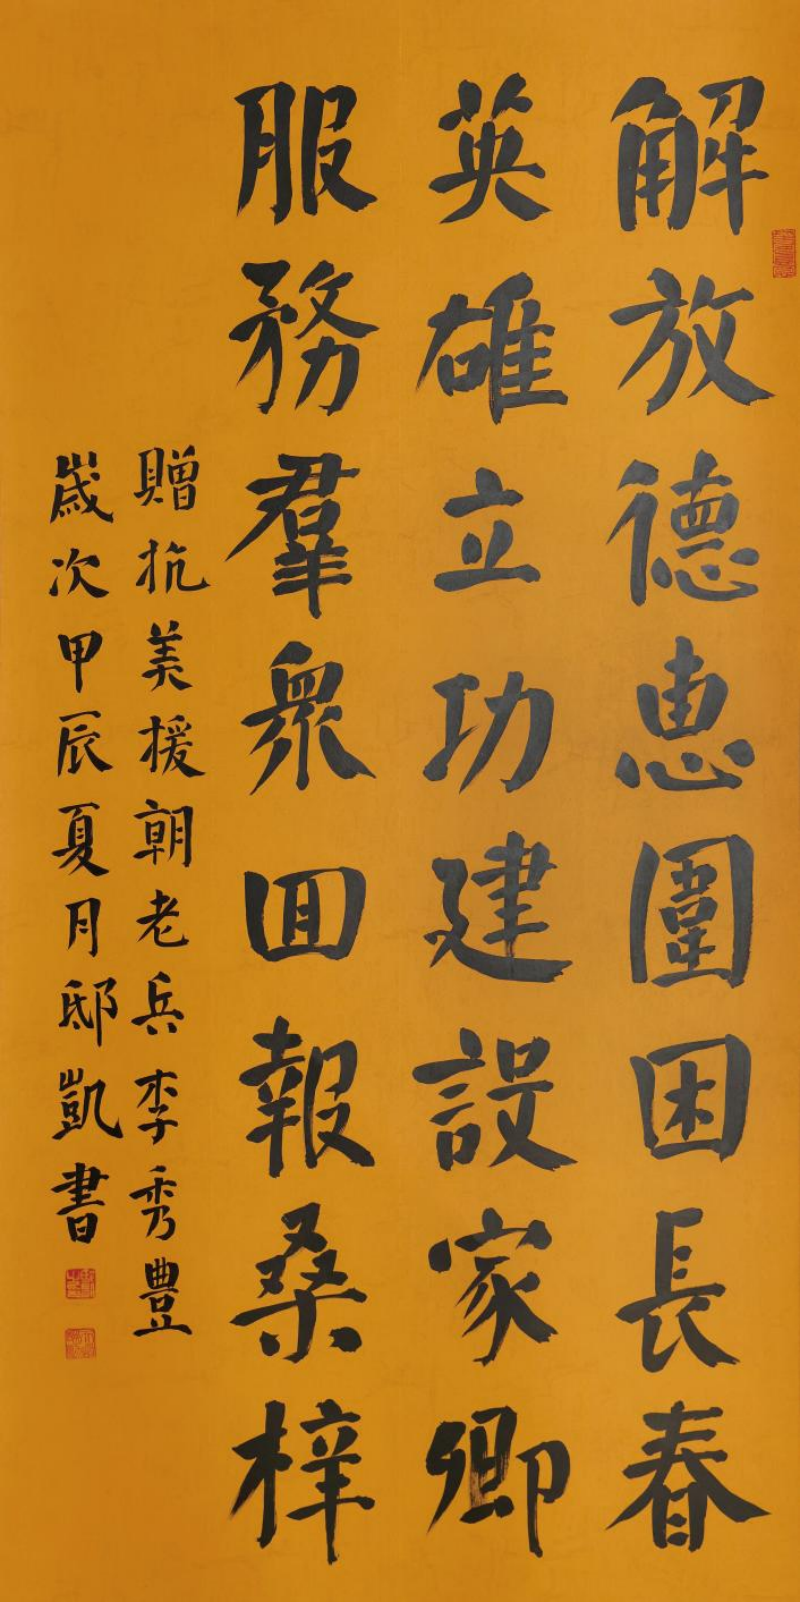 解放德惠圍困長春
英雄立功建設家卿
服務羣眾回報桑梓
贈抗美援朝老兵李秀豊
歲次甲辰夏月邸凱書